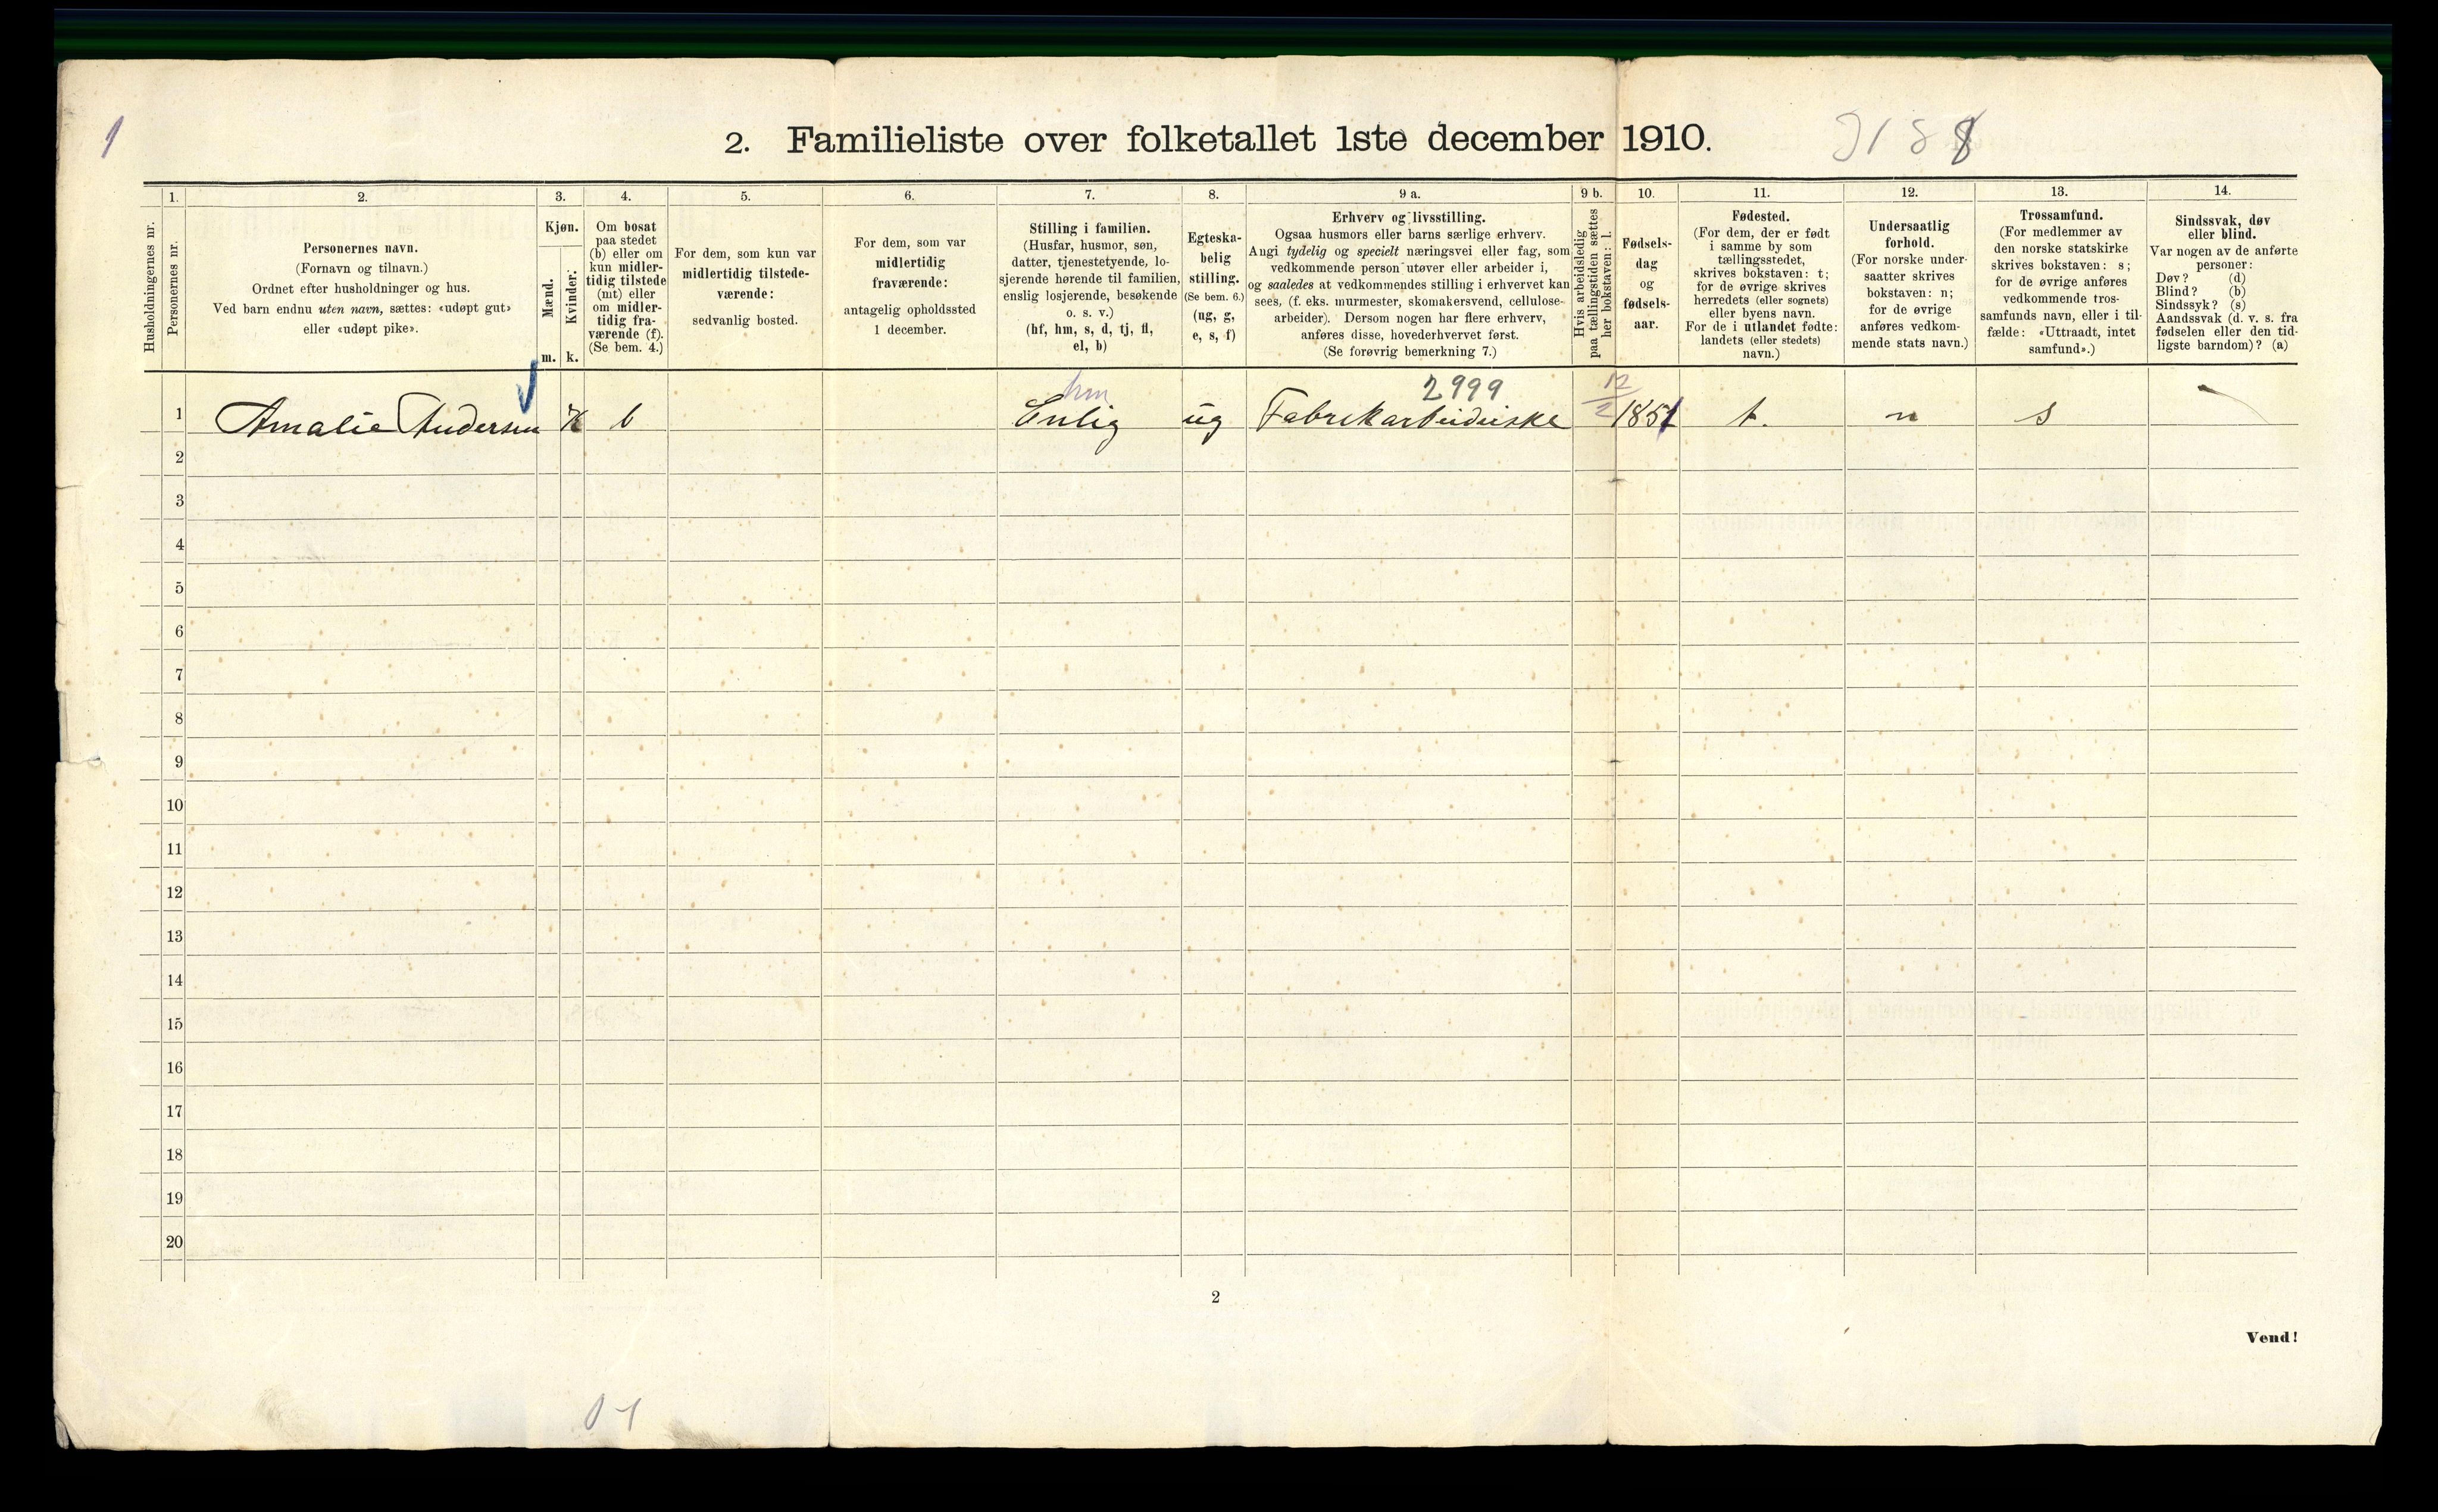 1
2. Familieliste over folketallet 1ste december 1910.
Husholdningernes nr.
1.
Personernes nr.
2.
Personernes navn.
(Fornavn og tilnavn.)
Ordnet efter husholdninger og hus.
Ved barn endnu uten navn, sættes: «udøpt gut»
eller «udøpt pike».
3.
Kjøn.
Mænd.
Kvinder.
m. k.
4.
Om bosat
paa stedet
(b) eller om
kun midler-
tidig tilstede
(mt) eller
om midler-
tidig fra-
værende (f).
(Se bem. 4.)
5.
For dem, som kun var
midlertidig tilstede-
værende:
sedvanlig bosted.
6.
For dem, som var
midlertidig
fraværende:
antagelig opholdssted
1 december.
7.
Stilling i familien.
(Husfar, husmor, søn,
datter, tjenestetyende, lo-
sjerende hørende til familien,
enslig losjerende, besøkende
o. s. v.)
(hf, hm, s, d, tj, fl,
el, b)
8.
Egteska-
belig
stilling.
(Se bem. 6.)
(ug, g,
e, s, f)
9 a.
Erhverv og livsstilling.
Ogsaa husmors eller barns særlige erhverv.
Angi tydelig og specielt næringsvei eller fag, som
vedkommende person utøver eller arbeider i,
og saaledes at vedkommendes stilling i erhvervet kan
sees, (f. eks. murmester, skomakersvend, cellulose-
arbeider). Dersom nogen har flere erhverv,
anføres disse, hovederhvervet først.
(Se forøvrig bemerkning 7.)
9 b.
Hvis arbeidsledig
paa tællingstiden sættes
her bokstaven: l.
10.
Fødsels-
dag
og
fødsels-
aar.
11.
Fødested.
(For dem, der er født
i samme by som
tællingsstedet,
skrives bokstaven: t;
for de øvrige skrives
herredets (eller sognets)
eller byens navn.
For de i utlandet fødte:
landets (eller stedets)
navn.)
12.
Undersaatlig
forhold.
(For norske under-
saatter skrives
bokstaven: n;
for de øvrige
anføres vedkom-
mende stats navn.)
13.
Trossamfund.
(For medlemmer av
den norske statskirke
skrives bokstaven: s;
for de øvrige anføres
vedkommende tros-
samfunds navn, eller i til-
fælde: «Uttraadt, intet
samfund».)
14.
Sindssvak, døv
eller blind.
Var nogen av de anførte
personer:
Døv? (d)
Blind? (b)
Sindssyk? (s)
Aandssvak (d. v. s. fra
fødselen eller den tid-
ligste barndom)? (a)
hm 2999 12/2
1 Amalie Andersen K b Enlig ug Fabrikarbeiderske 1851 t. n s
2
3
4
5
6
7
8
9
10
11
12
13
14
15
16
17
18
19
20
2
Vend!